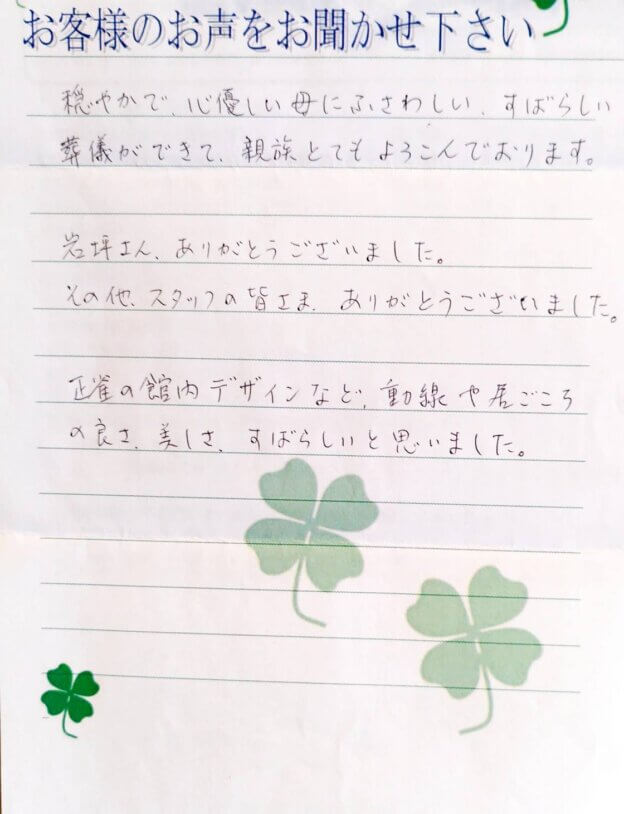 お客様のお声をお聞かせ下さい
穏やかで、心優しい母にふさわしい、すばらしい
葬儀ができて、親族とてもよろこんでおります。
岩坪さん、ありがとうございました。
その他、スタッフの皆さま、ありがとうございました。
正雀の館内デザインなど、動線や居ごころ
の良さ、美しさ、すばらしいと思いました。